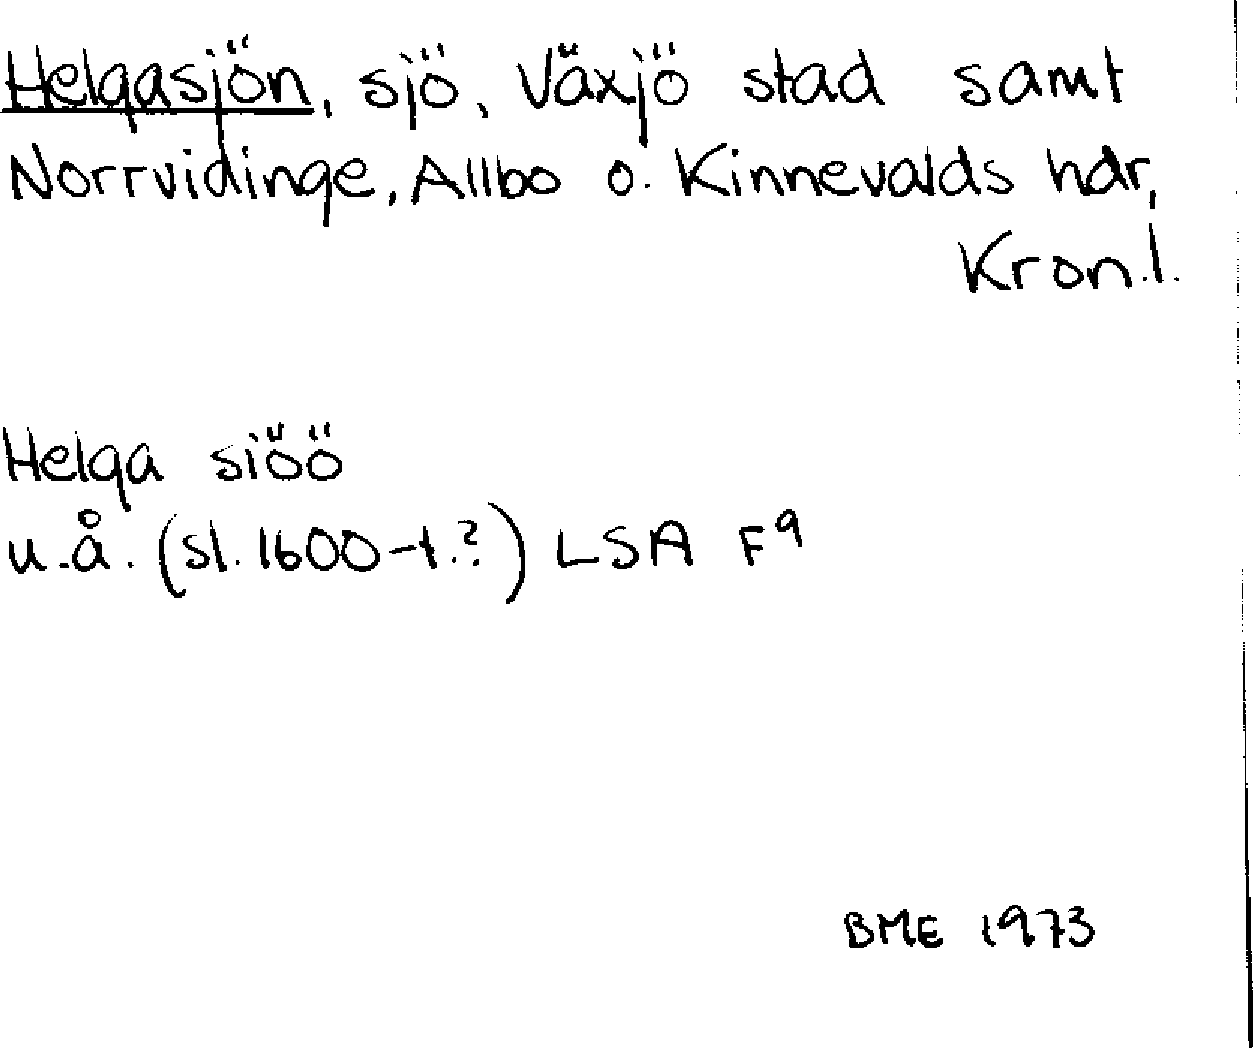 Helgasjön, sjö, Växjö stad samt
Norrvidinge, Allbo o. Kinnevalds hdr,
Kron.l.
Helga siöö
u.å. (sl. 1600-t.?) LSA F9
BME 1973